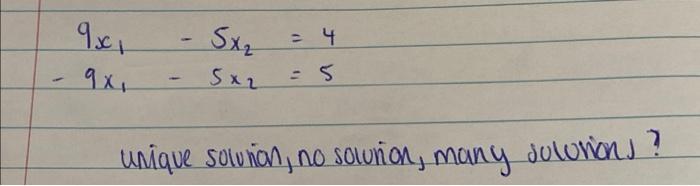 9x₁ - 5x₂ = 4
- 9x₁ - 5x₂ = 5
unique solution, no solution, many solutions?